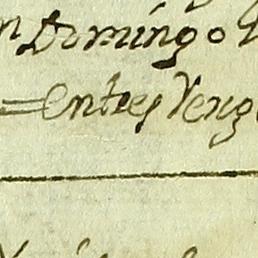 n Domingo
=entres Reng